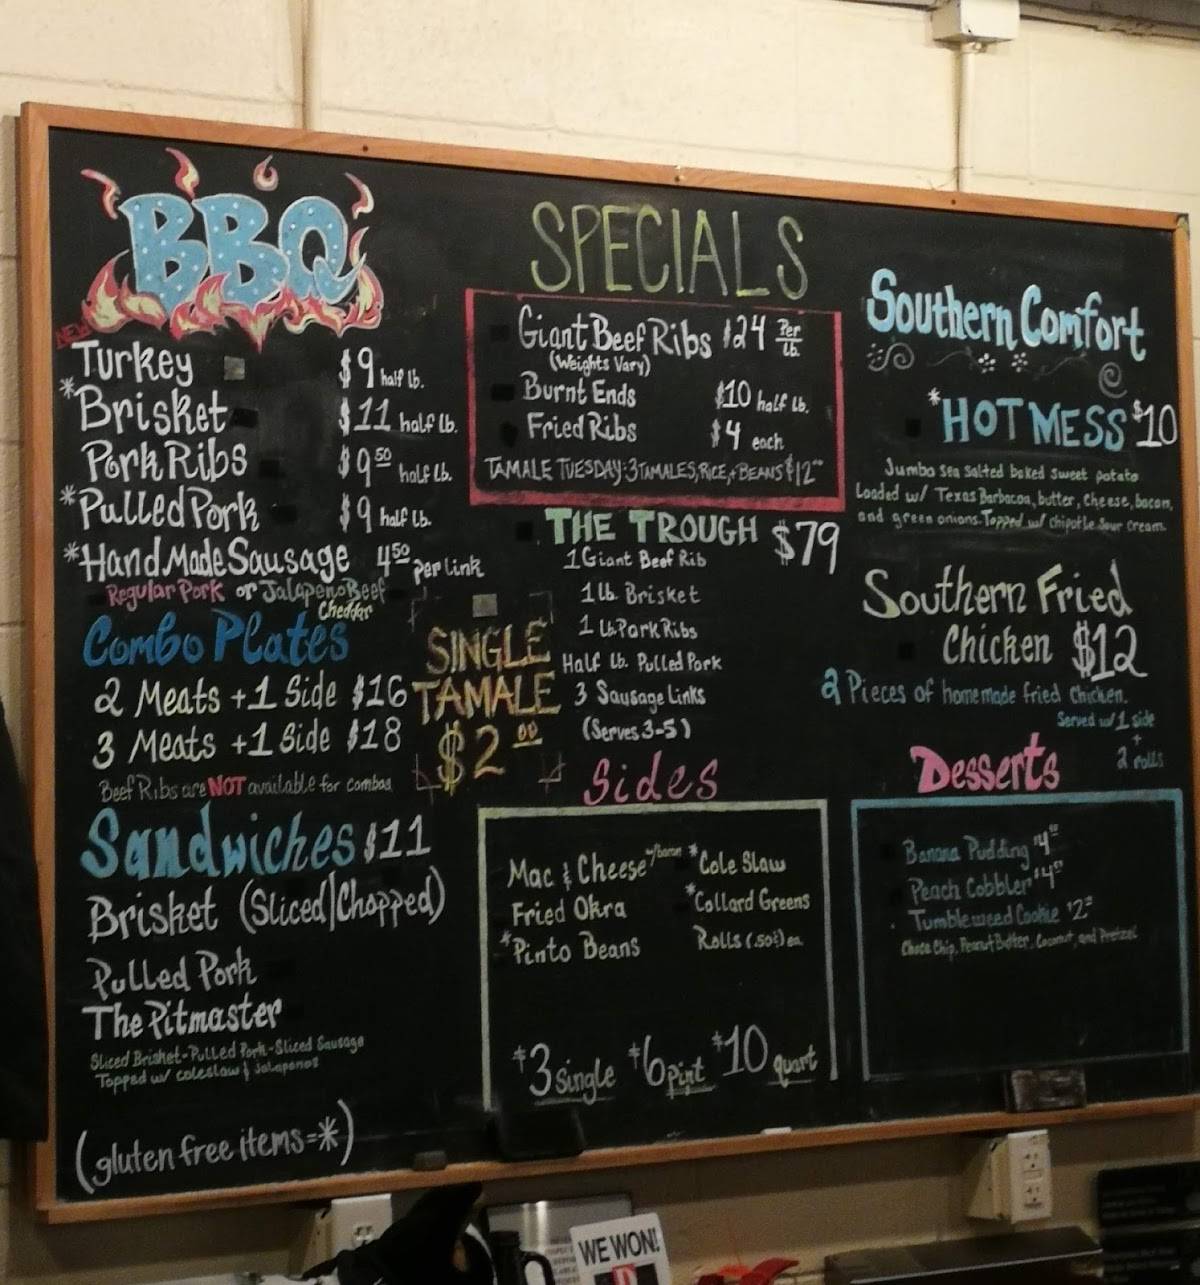 BBQ
NEW
Turkey $9 half lb.
*Brisket $11 half lb.
Pork Ribs $9 50 half lb.
*Pulled Pork $9 half lb.
*Hand Made Sausage 4 50 per link
Regular Pork or Jalapeno Beef
Cheddar
Combo Plates
2 Meats + 1 Side $16
3 Meats + 1 Side $18
Beef Ribs are NOT available for combos
SINGLE
TAMALE
$2 00
Sandwiches $11
Brisket (Sliced/Chopped)
Pulled Pork
The Pitmaster
Sliced Brisket-Pulled Pork-Sliced Sausage
Topped w/ coleslaw & Jalapenos
(gluten free items=*)
SPECIALS
Giant Beef Ribs $24 Per lb.
(Weights Vary)
Burnt Ends $10 half lb.
Fried Ribs $4 each
TAMALE TUESDAY: 3 TAMALES, RICE, + BEANS $12
THE TROUGH $79
1 Giant Beef Rib
1 lb. Brisket
1 lb. Pork Ribs
Half lb. Pulled Pork
3 Sausage Links
(Serves 3-5)
Sides
Mac & Cheese w/bacon *Cole Slaw
Fried Okra *Collard Greens
*Pinto Beans Rolls (.50¢) ea.
$3 single $6 pint $10 quart
Southern Comfort
*HOT MESS $10
Jumbo sea salted baked sweet potato
Loaded w/ Texas Barbacoa, butter, cheese, bacon,
and green onions. Topped w/ chipotle sour cream
Southern Fried
Chicken $12
2 Pieces of homemade fried chicken.
Served w/ 1 side
+
2 rolls
Desserts
Banana Pudding $4
Peach Cobbler $4
Tumbleweed Cookie $2
Choco Chip, Peanut Butter, Coconut, and Pretzel
WE WON!